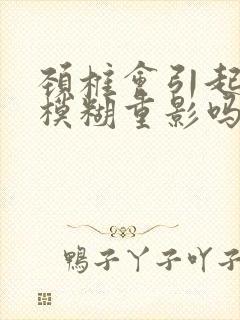 颈椎會引起
模糊重影吗
鴨子丫子吖子